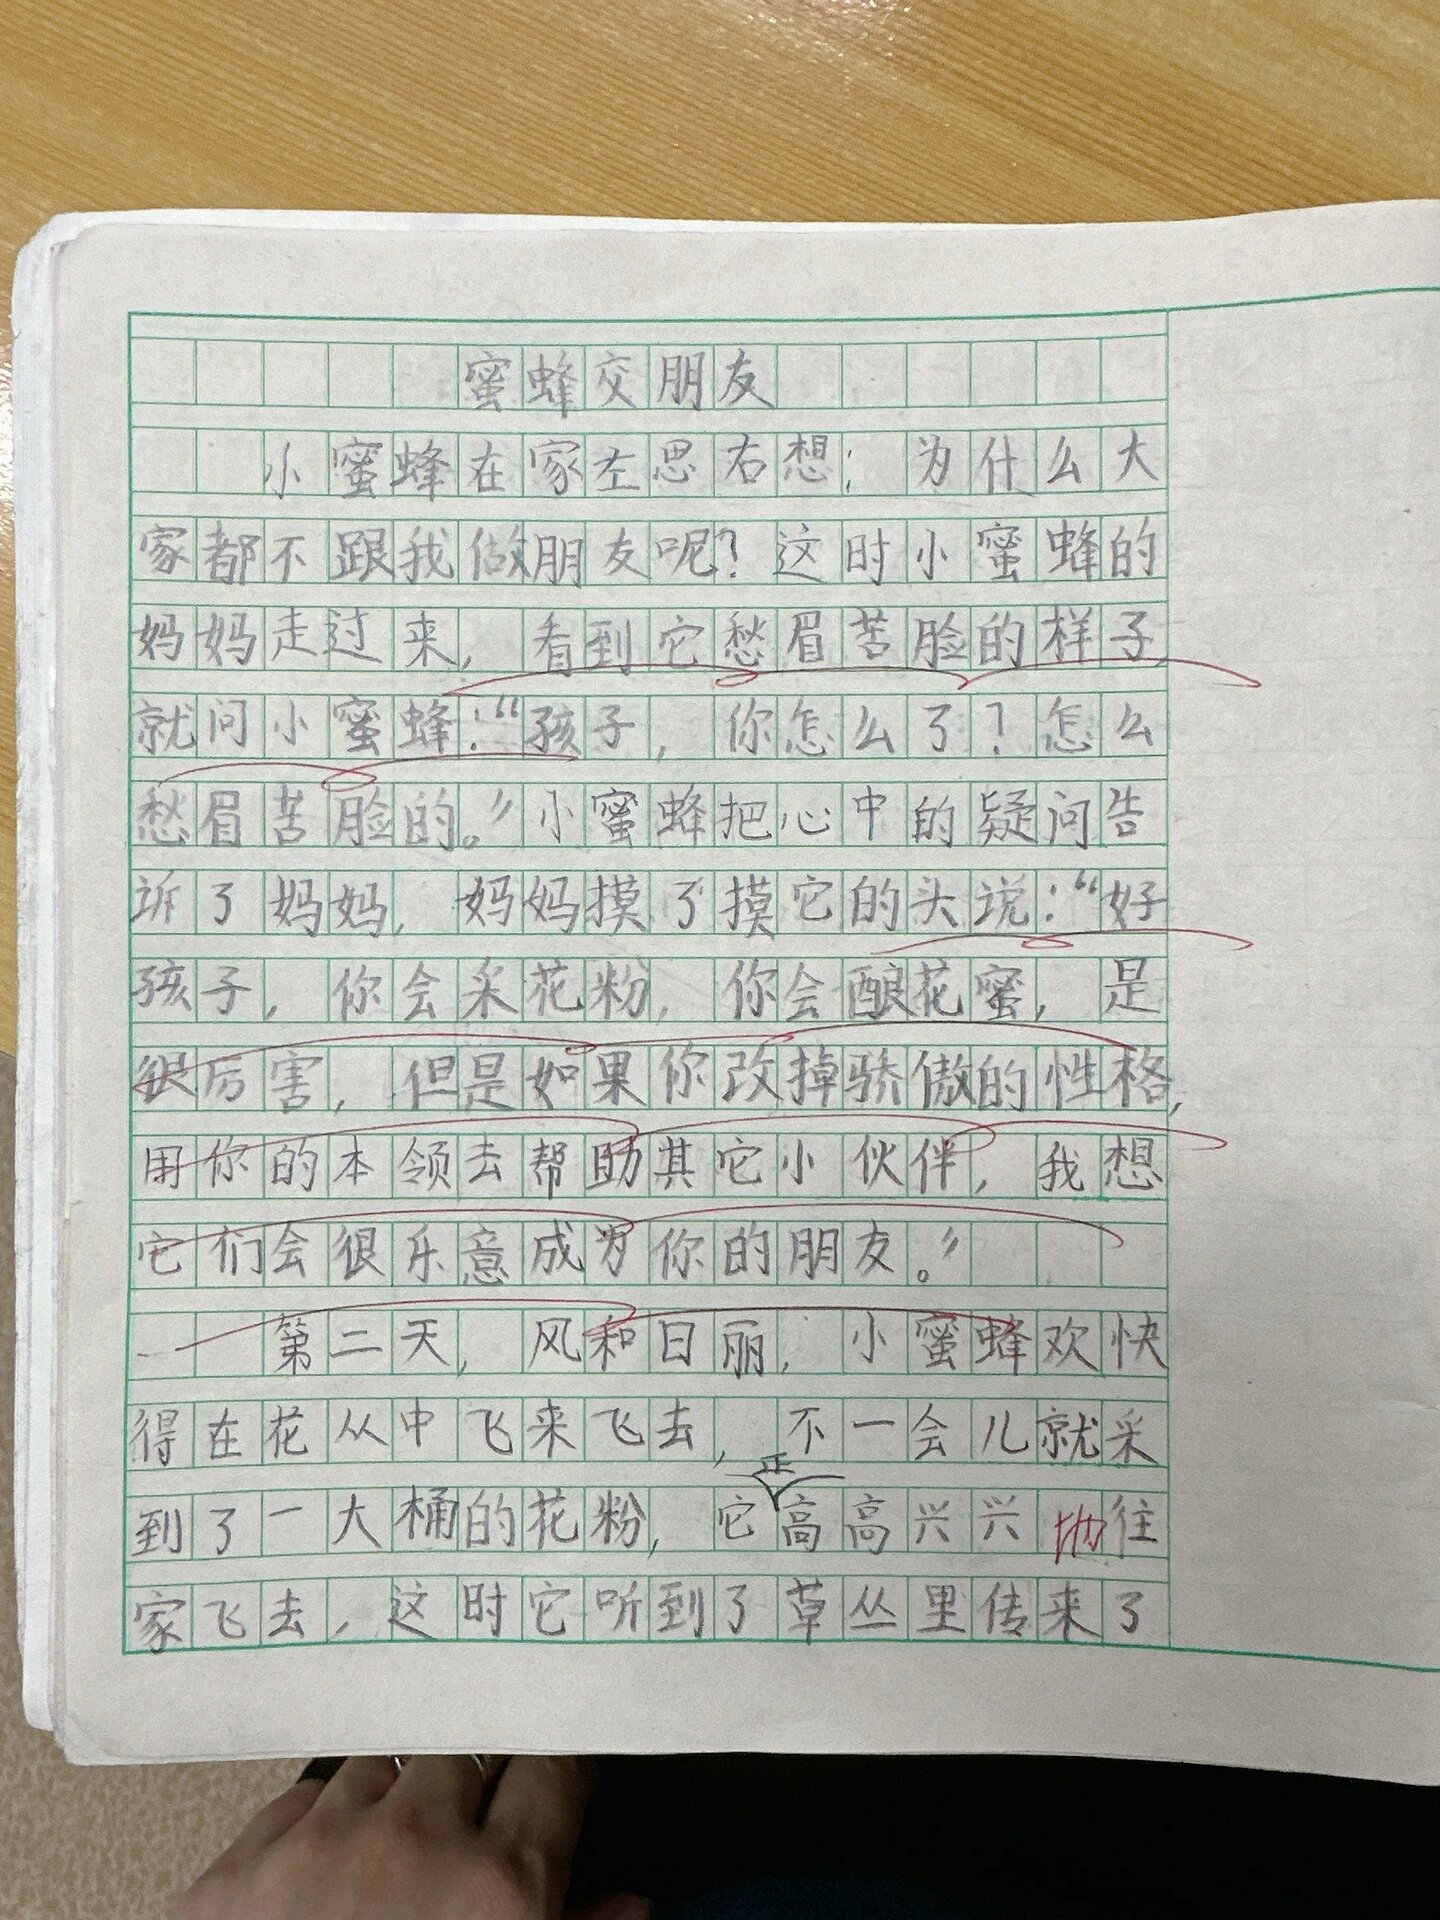 蜜蜂交朋友
小蜜蜂在家左思右想：为什么大
家都不跟我做朋友呢？这时小蜜蜂的
妈妈走过来，看到它愁眉苦脸的样子，
就问小蜜蜂：“孩子，你怎么了？怎么
愁眉苦脸的。”小蜜蜂把心中的疑问告
诉了妈妈，妈妈摸了摸它的头说：“好
孩子，你会采花粉，你会酿花蜜，是
很厉害，但是如果你改掉骄傲的性格，
用你的本领去帮助其它小伙伴，我想
它们会很乐意成为你的朋友。”
第二天，风和日丽，小蜜蜂欢快
得在花从中飞来飞去，不一会儿就采
到了一大桶的花粉，它正高高兴兴地往
家飞去，这时它听到了草丛里传来了